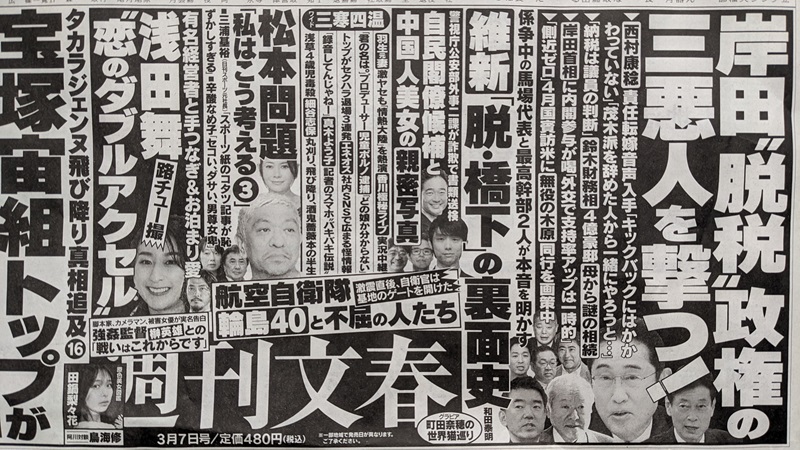 岸田“脱税”政権の
三悪人を撃つ！
▼西村康稔 責任転嫁音声入手「キックバックにはかか
わっていない」「茂木派を辞めた人から一緒にやろうと…」
▼「納税は議員の判断」鈴木財務相 4億豪邸 母から謎の相続
▼岸田首相に内閣参与が喝「外交で支持率アップは一時的」
▼側近ゼロ 4月国賓訪米に無役の木原 同行を画策中
係争中の馬場代表と最高幹部2人が本音を明かす
維新「脱・橋下」の裏面史
和田泰明
警視庁公安部外事一課が詐欺で書類送検
自民閣僚候補と
中国人美女の親密写真
ワイド
三寒四温
羽生善治
激ヤセも「情熱大陸」を熱演
実況中継
「君の名は。」プロデューサー
児童ポルノ逮捕
どの娘か分からない
トップがセクハラ退場3連発
エネオス
社内SNSで広まる怪情報
「録音してんじゃね!」
真木よう子
記者のスマホ“バキバキ”伝説
浅草4歳児毒殺
細谷志保
丸刈り、飛び降り、酒乱薔薇の半生
松本問題
私はこう考える③
三浦基裕(日刊スポーツ元社長)「スポーツ紙のコタツ記事が恥
ずかしすぎる」
辛酸なめ子「セコい、ダサい、男尊女卑」
有名経営者と手つなぎ&お泊まり愛
浅田舞
“恋のダブルアクセル”
路チュー撮
タカラジェンヌ飛び降り真相追及⑯
宝塚宙組トップが
航空自衛隊
激震直後、自衛官は
基地のゲートを開けた
「輪島40」と不屈の人たち
脚本家、カメラマン、被害女優が実名告白
強姦監督榊英雄との
“戦いはこれからです”
原色美女図鑑
田鍋梨々花
阿川対談
鳥海修
週刊文春
3月7日号/定価480円(税込)
※一部地域で発売日が異なります。
ご了承ください。
グラビア
町田奈穂の
世界猫巡り